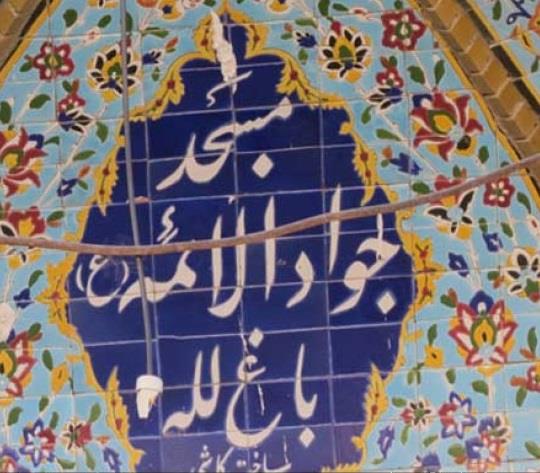 مسجد
جواد الائمه (ع)
باغ لله
کاشی